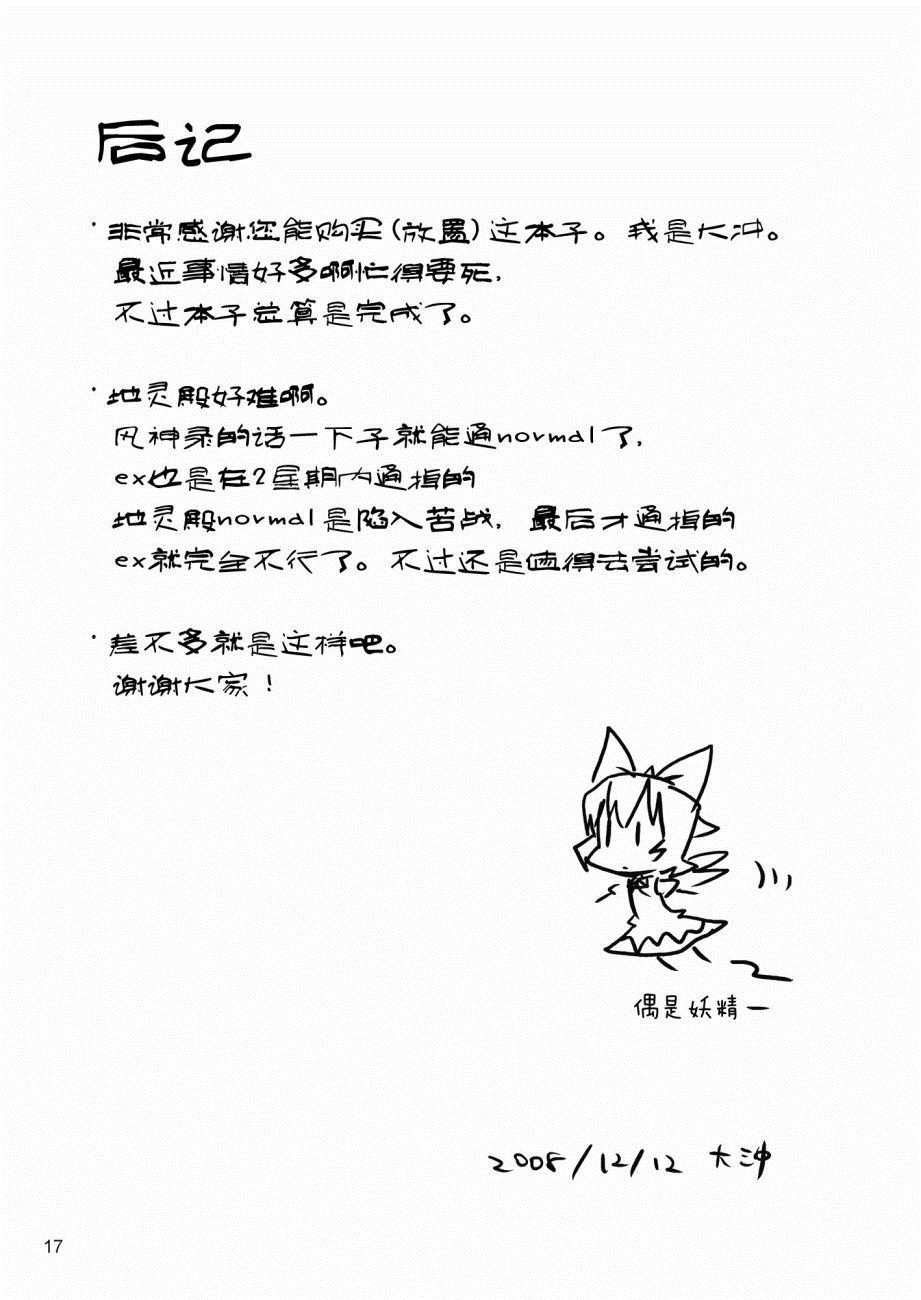 后记
·非常感谢您能购买(放置)这本子。我是大冲。
最近事情好多啊忙得要死，
不过本子总算是完成了。
·地灵殿好难啊。
风神录的话一下子就能通normal了，
ex也是在2星期内通掉的
地灵殿normal是陷入苦战，最后才通掉的
ex就完全不行了。不过还是值得去尝试的。
·差不多就是这样吧。
谢谢大家！
偶是妖精一
2008/12/12 大冲
17